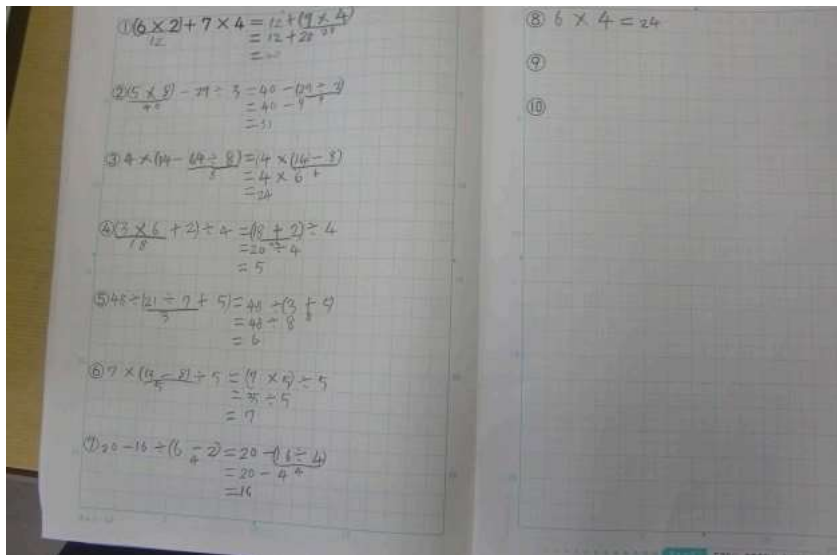 ①(6×2)+7×4=12+(7×4)
12 28
=12+28
=40
②(5×8)-27÷3=40-(27÷3)
40 9
=40-9
=31
③4×(14-64÷8)=14×(14-8)
8 6
=4×6
=24
④(3×6+2)÷4=(18+2)÷4
18
=20÷4
=5
⑤48÷(21÷7+5)=48÷(3+5)
3 8
=48÷8
=6
⑥7×(13-8)÷5=(7×5)÷5
5
=35÷5
=7
⑦20-16÷(6-2)=20-(16÷4)
4
=20-4
=16
⑧6×4=24
⑨
⑩